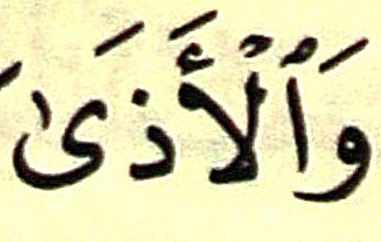 وَٱلْأَذَىٰ